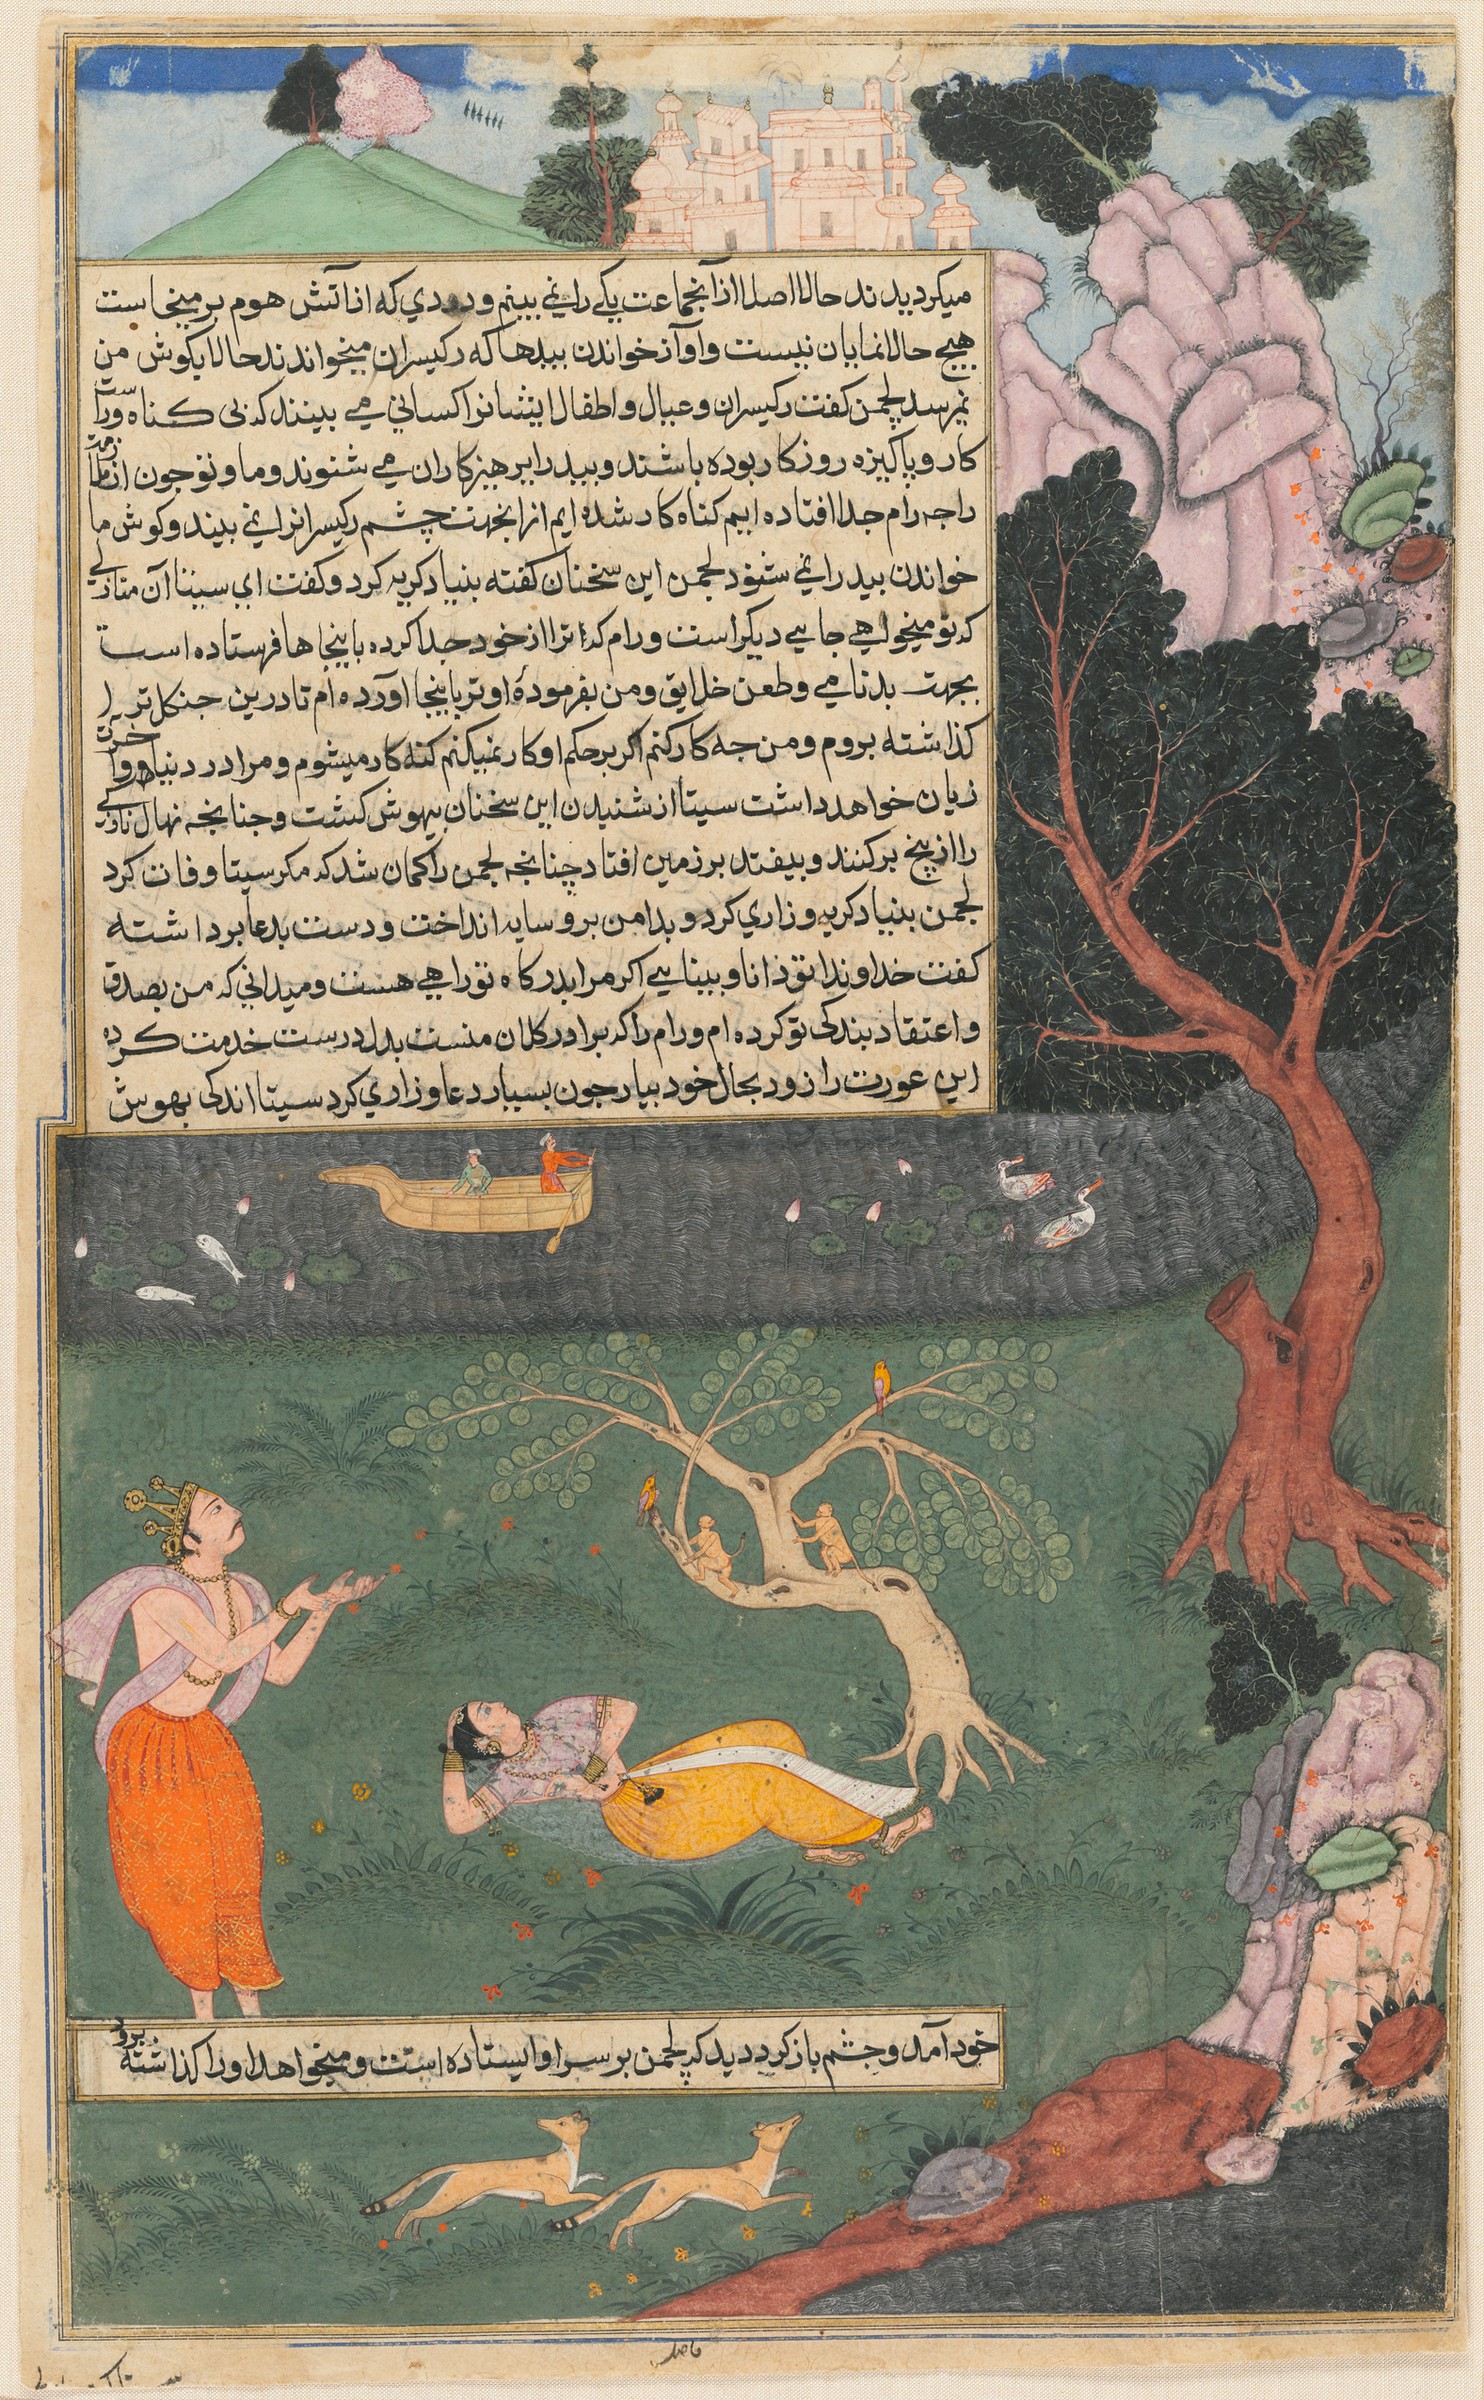 میکردیدند حالا اصلا از آنجماعت یکی را نمی بینم و دودی که از آتش هوم بر میخاست
هیچ حالا نمایان نیست و آواز خواندن بیدها که رکیسران میخواندند حالا بکوش من
نمیرسد لچمن کفت رکیسران و عیال و اطفال ایشانرا کسانی می بینند که بی کناه و راست
کار و پاکیزه روزکار بوده باشند و بید را پرهیزکاران می شنوند و ما و تو چون از ملازمت
راجه رام جدا افتاده ایم کناه کار شده ایم از انجهت چشم رکیسرانرا نمی بیند و کوش ما
خواندن بید را نمی شنود لچمن این سخنان کفته بنیاد کریه کرد و کفت ای سیتا آن منازلی
که تو میخواهی جایی دیکر است و رام که ترا از خود جدا کرده باینجاها فرستاده است
بجهت بدنامی و طعن خلایق و من بفرموده او ترا باینجا آورده ام تا درین جنکل ترا
کذاشته بروم و من چه کار کنم اکر بر حکم او کار نمیکنم کنه کار میشوم و مرا در دنیا و آخرت
زیان خواهد داشت سیتا از شنیدن این سخنان بیهوش کشت و چنانچه نهال
را از بیخ برکنند و بیفتد بر زمین افتاد چنانچه لچمن را کمان شد که مکر سیتا وفات کرد
لچمن بنیاد کریه و زاری کرد و بدامن برو سایه انداخت و دست بدعا برداشته
کفت خداوندا تو دانا و بینایی اکر مرا بدرکاه تو راهی هست و میدانی که من بصدق
و اعتقاد بندکی تو کرده ام و رام را که برادر کلان منست بدل درست خدمت کرده
این عورت را زود بحال خود بیار چون بسیار دعا و زاری کرد سیتا اندکی بهوش
خود آمد و چشم باز کرد دید که لچمن بر سر او ایستاده است و میخواهد او را کذاشته برود